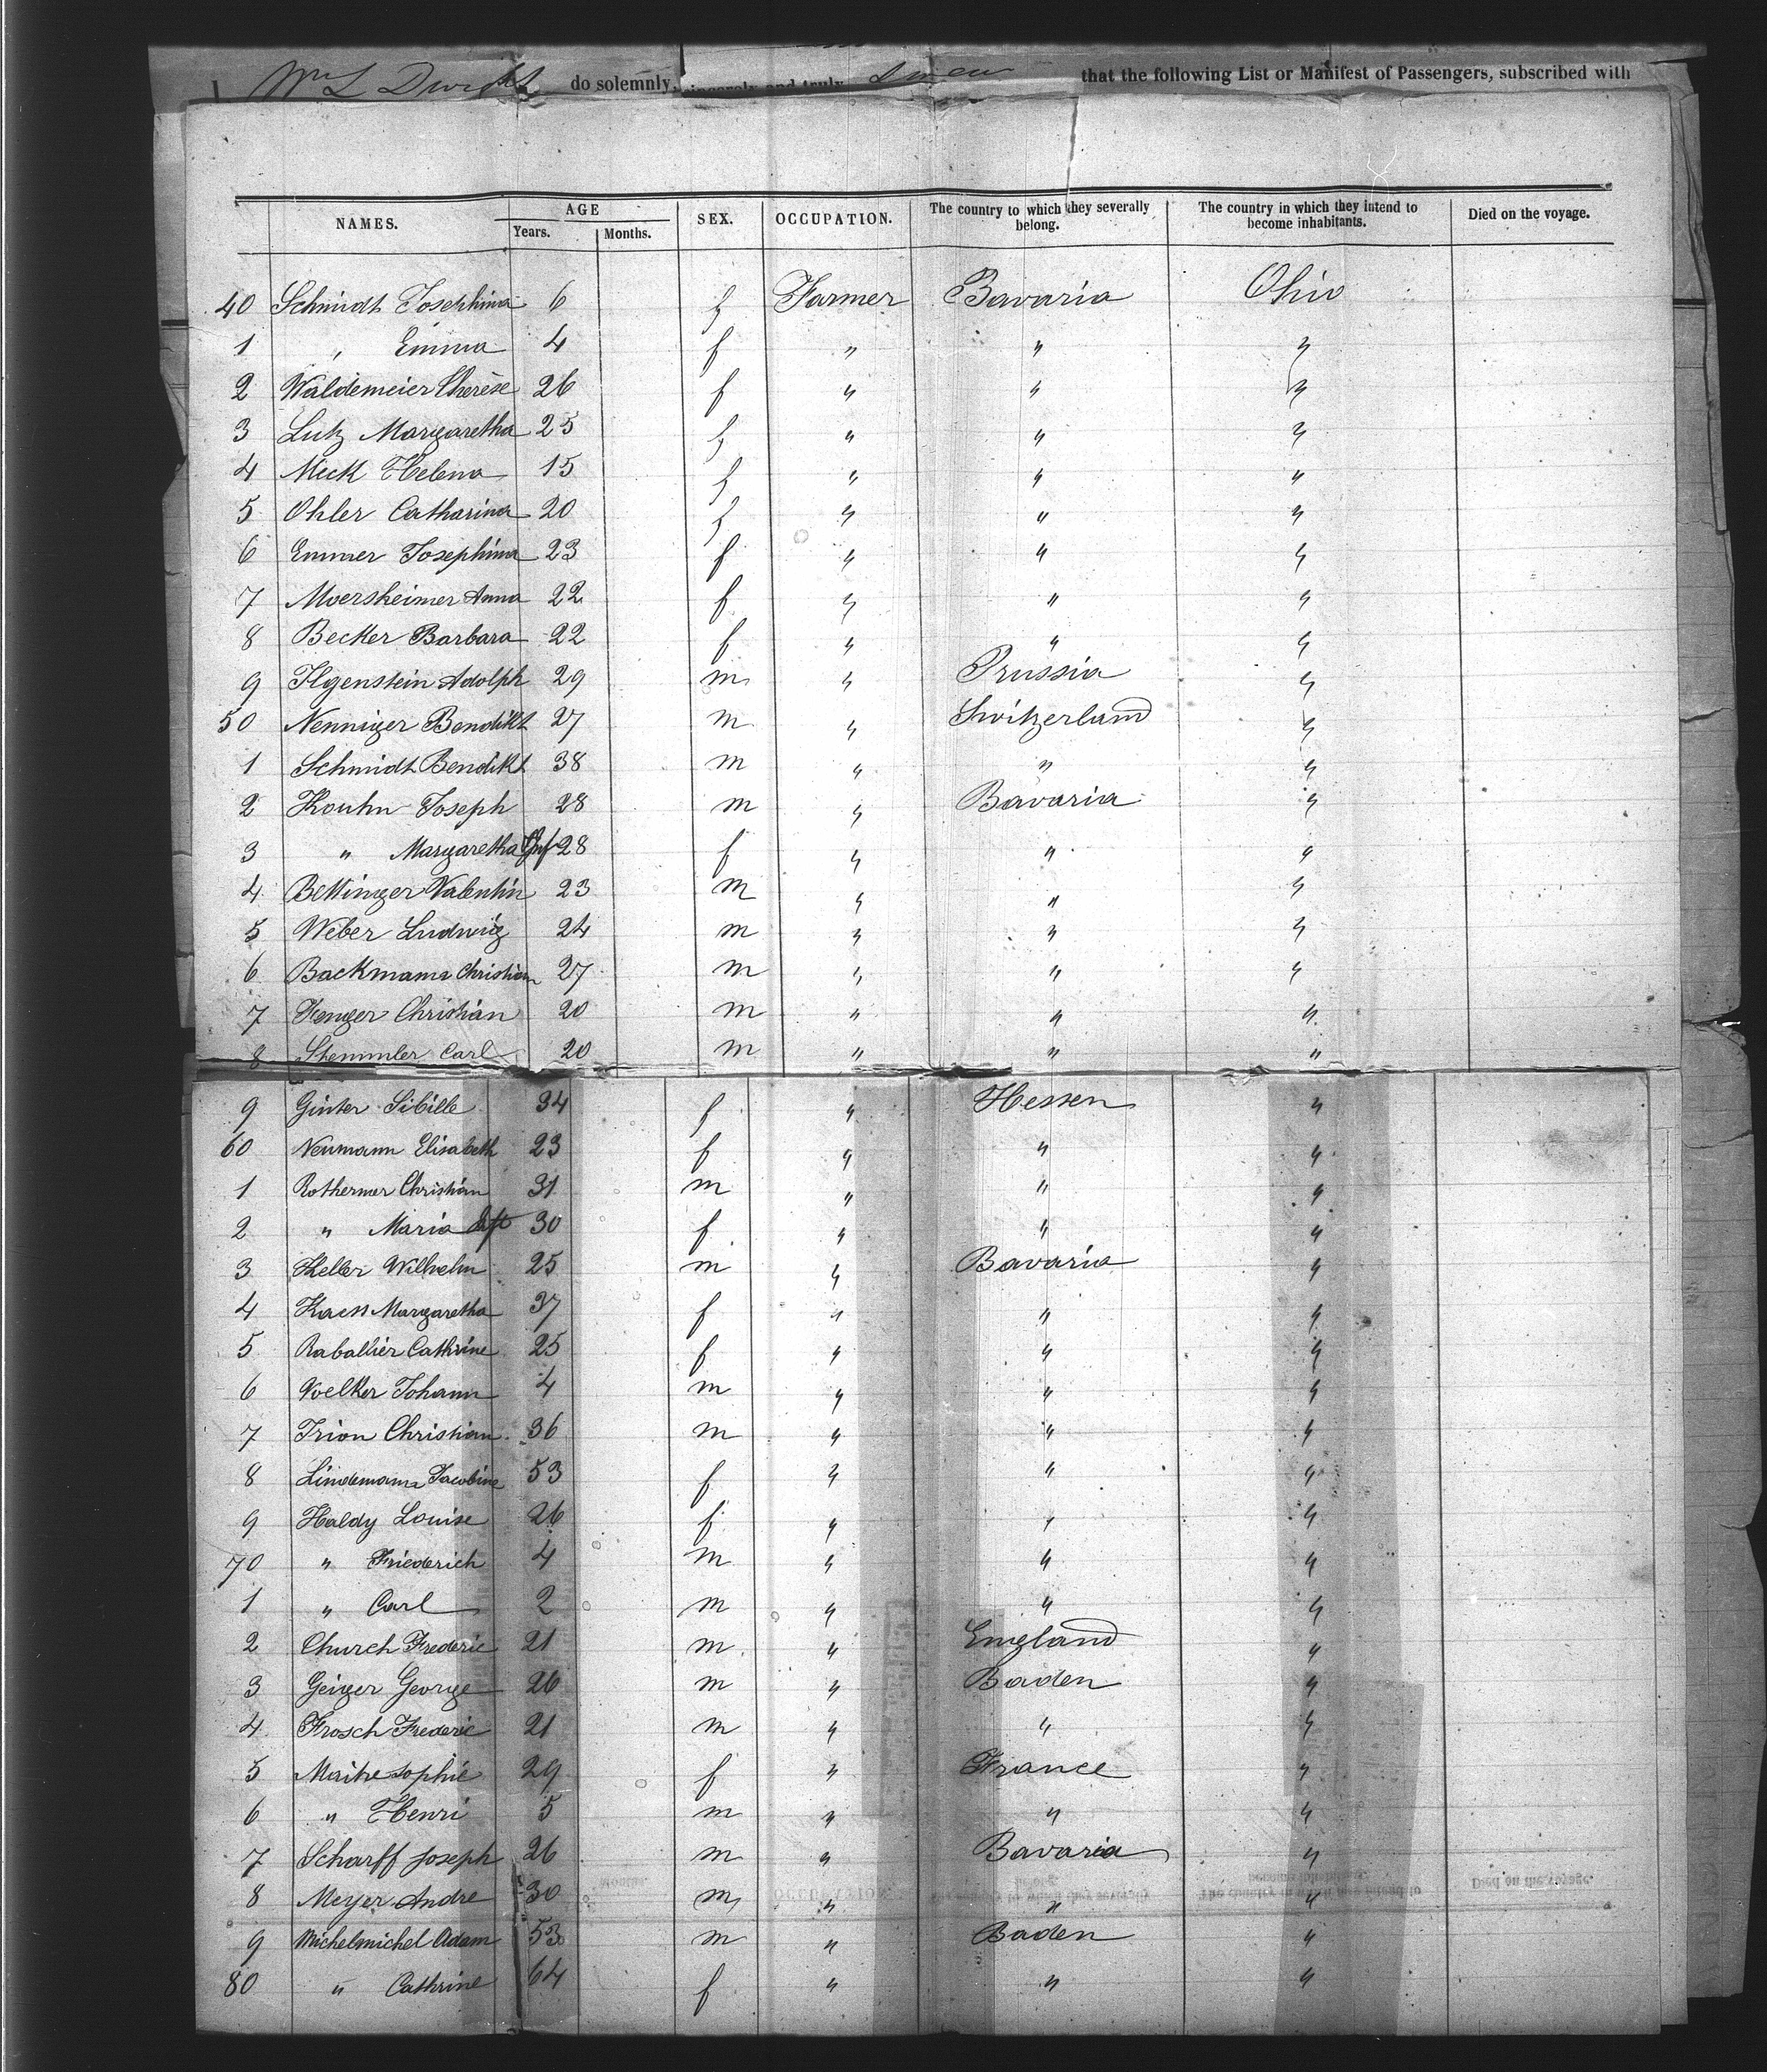 I Wm L Dwight do solemnly, sincerely and truly that the following List or Manifest of Passengers, subscribed with
NAMES. AGE Years. Months. SEX. OCCUPATION. The country to which they severally belong. The country in which they intend to become inhabitants. Died on the voyage.
40 Schmidt Josephina 6 f Farmer Bavaria Ohio
1 " Emma 4 f " " "
2 Waldemeier Therèse 26 f " " "
3 Lutz Margaretha 25 f " " "
4 Mick Helena 15 f " " "
5 Ohler Catharina 20 f " " "
6 Emmer Josephina 23 f " " "
7 Moersheimer Anna 22 f " " "
8 Becker Barbara 22 f " " "
9 Ilgenstein Adolph 29 m " Prussia "
50 Nenniger Bendikt 27 m " Switzerland "
1 Schmidt Bendikt 38 m " " "
2 Kouhn Joseph 28 m " Bavaria "
3 " Margaretha 28 f " " "
4 Bettinger Valentin 23 m " " "
5 Weber Ludwig 24 m " " "
6 Backmann Christian 27 m " " "
7 Fenger Christian 20 m " " "
8 Stemmler Carl 20 m " " "
9 Ginter Sibille 34 f " Hessen "
60 Neumann Elisabeth 23 f " " "
1 Rothermer Christian 31 m " " "
2 " Maria 30 f " " "
3 Keller Wilhelm 25 m " Bavaria "
4 Kaess Margaretha 37 f " " "
5 Raballier Cathrine 25 f " " "
6 Voelker Johann 4 m " " "
7 Trion Christian 36 m " " "
8 Lindemann Jacobine 53 f " " "
9 Haldy Louise 26 f " " "
70 " Friederich 4 m " " "
1 " Carl 2 m " " "
2 Church Frederic 21 m " England "
3 Geiger George 26 m " Baden "
4 Frosch Frederic 21 m " " "
5 Maitre Sophie 29 f " France "
6 " Henri 5 m " " "
7 Scharff Joseph 26 m " Bavaria "
8 Meyer Andre 30 m " " "
9 Michelmichel Adam 53 m " Baden "
80 " Cathrine 64 f " " "